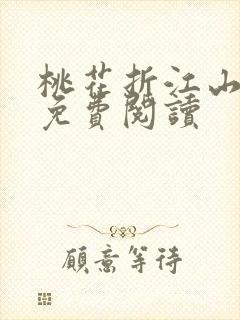 桃花折江山
免費閱讀
願意等待